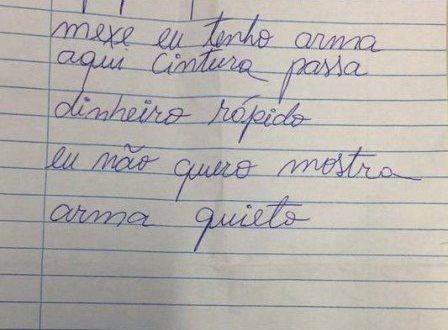 mexe eu tenho arma
aqui cintura passa
dinheiro rápido
eu não quero mostra
arma quieto